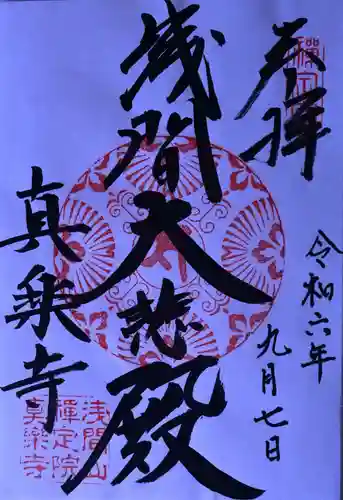 奉拝
禅定
令和六年
九月七日
浅間大悲殿
真楽寺
浅間山
禅定院
真樂寺